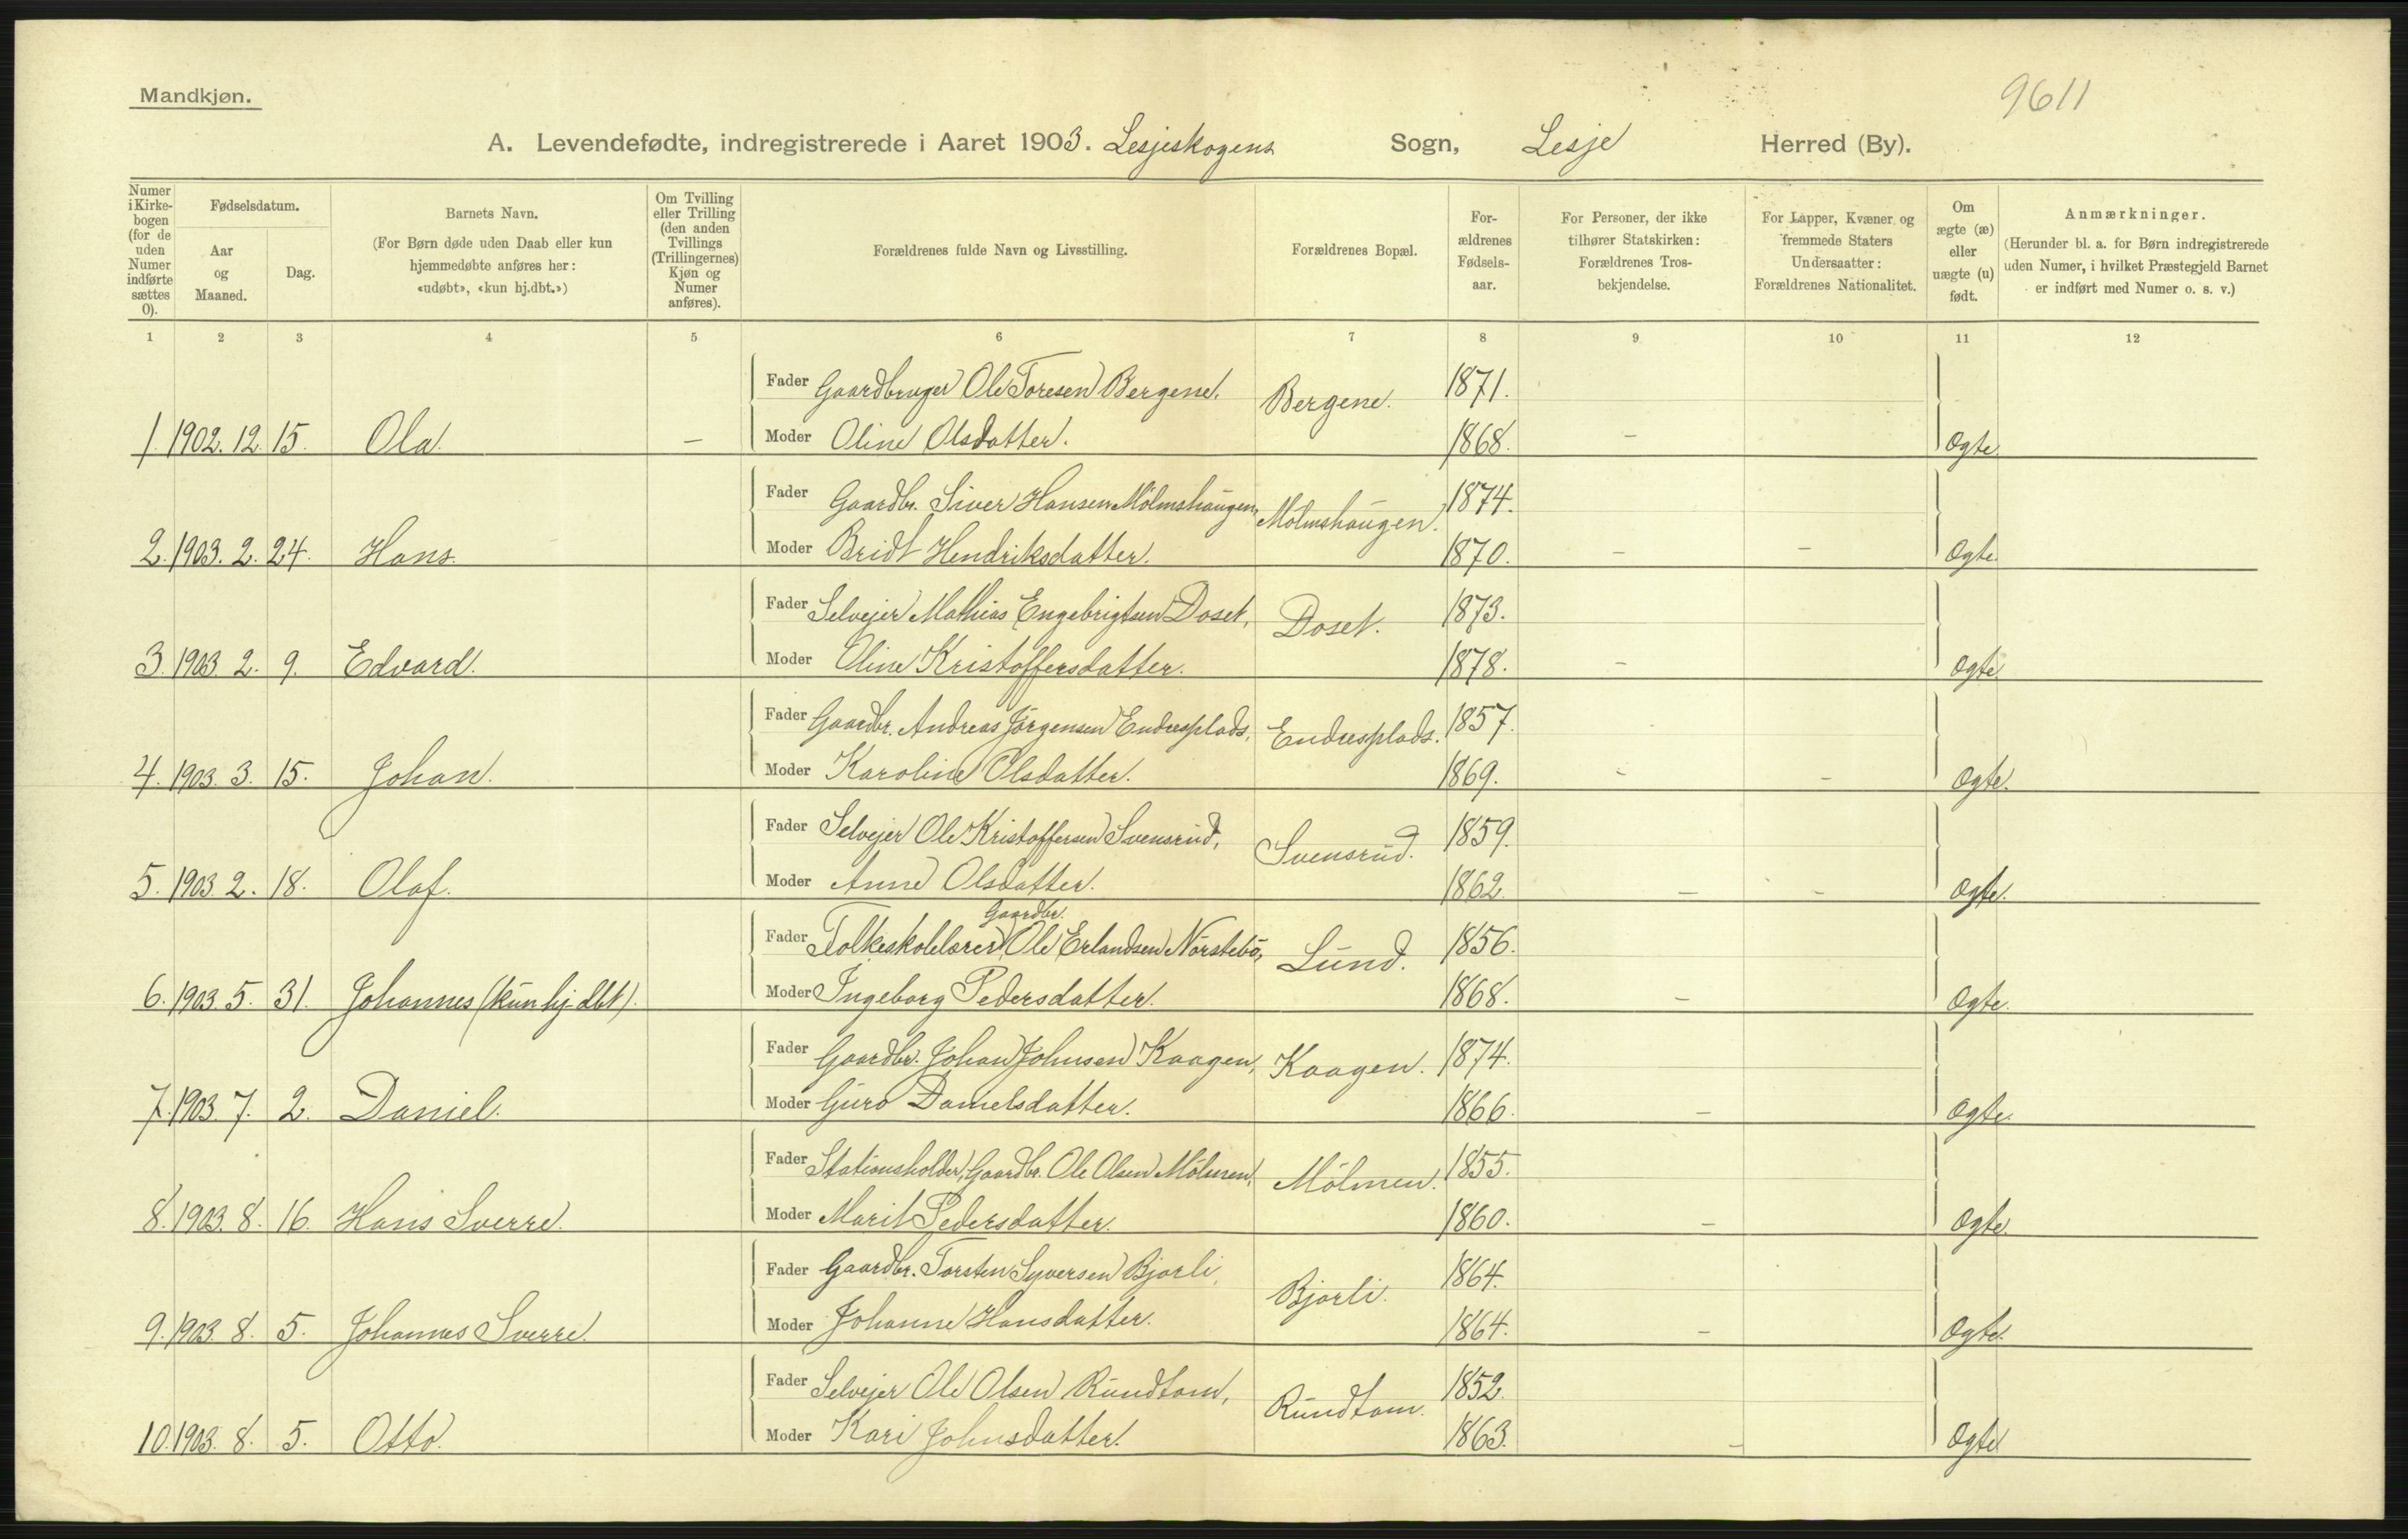 Mandkjøn.
9611
A. Levendefødte, indregistrerede i Aaret 1903. Lesjeskogens Sogn, Lesje Herred (By).
Numer i Kirkebogen (for de uden Numer indførte sættes 0).
Fødselsdatum.
Aar og Maaned.
Dag.
Barnets Navn.
(For Børn døde uden Daab eller kun hjemmedøbte anføres her: «udøbt», «kun hj.dbt.»)
Om Tvilling eller Trilling (den anden Tvillings (Trillingernes) Kjøn og Numer anføres).
Forældrenes fulde Navn og Livsstilling.
Forældrenes Bopæl.
For-ældrenes Fødsels-aar.
For Personer, der ikke tilhører Statskirken: Forældrenes Tros-bekjendelse.
For Lapper, Kvæner og fremmede Staters Undersaatter: Forældrenes Nationalitet.
Om ægte (æ) eller uægte (u) født.
Anmærkninger.
(Herunder bl. a. for Børn indregistrerede uden Numer, i hvilket Præstegjeld Barnet er indført med Numer o. s. v.)
1 2 3 4 5 6 7 8 9 10 11 12
Fader Gaardbruger Ole Toresen Bergene. Bergene. 1871.
1. 1902. 12. 15. Ola. – Moder Oline Olsdatter. 1868. – Ogte.
Fader Gaardbr. Siver Hansen Mölmshaugen, Mölmshaugen. 1874.
2. 1903. 2. 24. Hans. Moder Bridt Hendriksdatter. 1870. – – Ogte.
Fader Selvejer Mathias Engebrigtsen Doset, Doset. 1873.
3. 1903. 2. 9. Edvard. Moder Oline Kristoffersdatter. 1878. – Ogte.
Fader Gaardbr. Andreas Jörgensen Endresplads, Endresplads. 1857.
4. 1903. 3. 15. Johan. Moder Karoline Olsdatter. 1869. – – Ogte.
Fader Selvejer Ole Kristoffersen Svensrud, Svensrud. 1859.
5. 1903. 2. 18. Olaf. Moder Anne Olsdatter. 1862. – – Ogte.
Gaardbr.
Fader Folkeskolelærer, Ole Erlandsen Norstebö, Lund. 1856.
6. 1903. 5. 31. Johannes (kun hj. dbt). Moder Ingeborg Pedersdatter. 1868. – Ogte.
Fader Gaardbr. Johan Johnsen Kaagen, Kaagen. 1874.
7. 1903. 7. 2. Daniel. Moder Guro Danielsdatter. 1866. – Ogte.
Fader Stationsholder, Gaardbr. Ole Olsen Mölmen, Mölmen. 1855.
8. 1903. 8. 16. Hans Sverre. Moder Marit Pedersdatter. 1860. – Ogte.
Fader Gaardbr. Torsten Syversen Bjorli, Bjorli. 1864.
9. 1903. 8. 5. Johannes Sverre. Moder Johanne Hansdatter. 1864. – Ogte.
Fader Selvejer Ole Olsen Rundtom, Rundtom. 1852.
10. 1903. 8. 5. Otto. Moder Kari Johnsdatter. 1863. – Ogte.